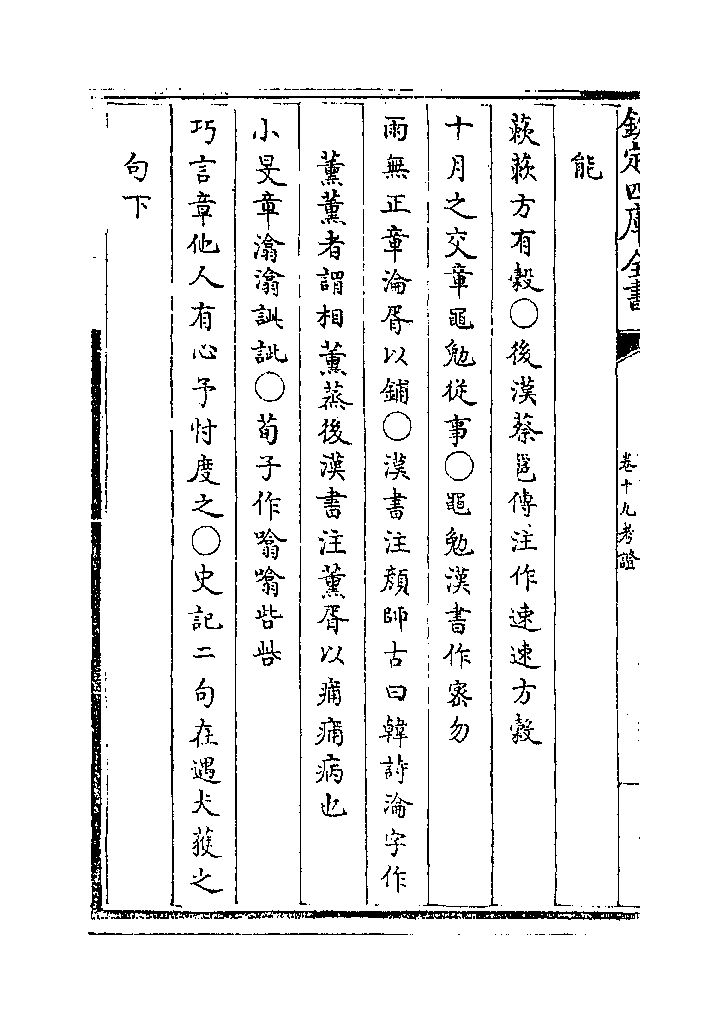 欽定四庫全書
卷十九考證
能
蔌蔌方有穀○後漢蔡邕傳注作速速方穀
十月之交章黽勉從事○黽勉漢書作宻勿
雨無正章淪胥以鋪○漢書注顔師古曰韓詩淪字作
薰薰者謂相薰蒸後漢書注薰胥以痡痡病也
小旻章潝潝訿訿○荀子作噏噏呰呰
巧言章他人有心予忖度之○史記二句在遇犬𫉬之
句下